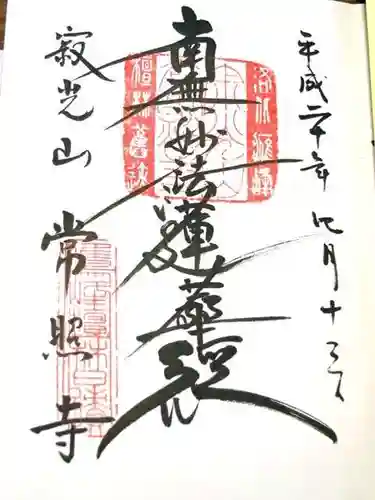 平成二十年四月十三日
南無妙法蓮華経
寂光山
常照寺